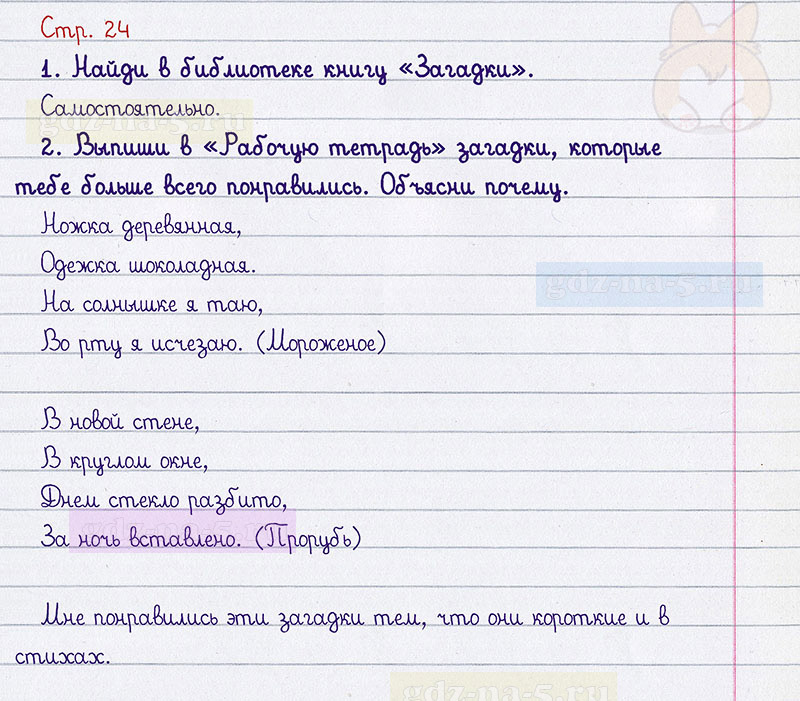 Стр. 24
1. Найди в библиотеке книгу «Загадки».
Самостоятельно.
gdz-na-5.ru
2. Выпиши в «Рабочую тетрадь» загадки, которые
тебе больше всего понравились. Объясни почему.
Ножка деревянная,
Одежка шоколадная.
gdz-na-5.ru
На солнышке я таю,
Во рту я исчезаю. (Мороженое)
В новой стене,
В круглом окне,
Днем стекло разбито,
gdz-na-5.ru
За ночь вставлено. (Прорубь)
Мне понравились эти загадки тем, что они короткие и в
стихах.
gdz-na-5.ru